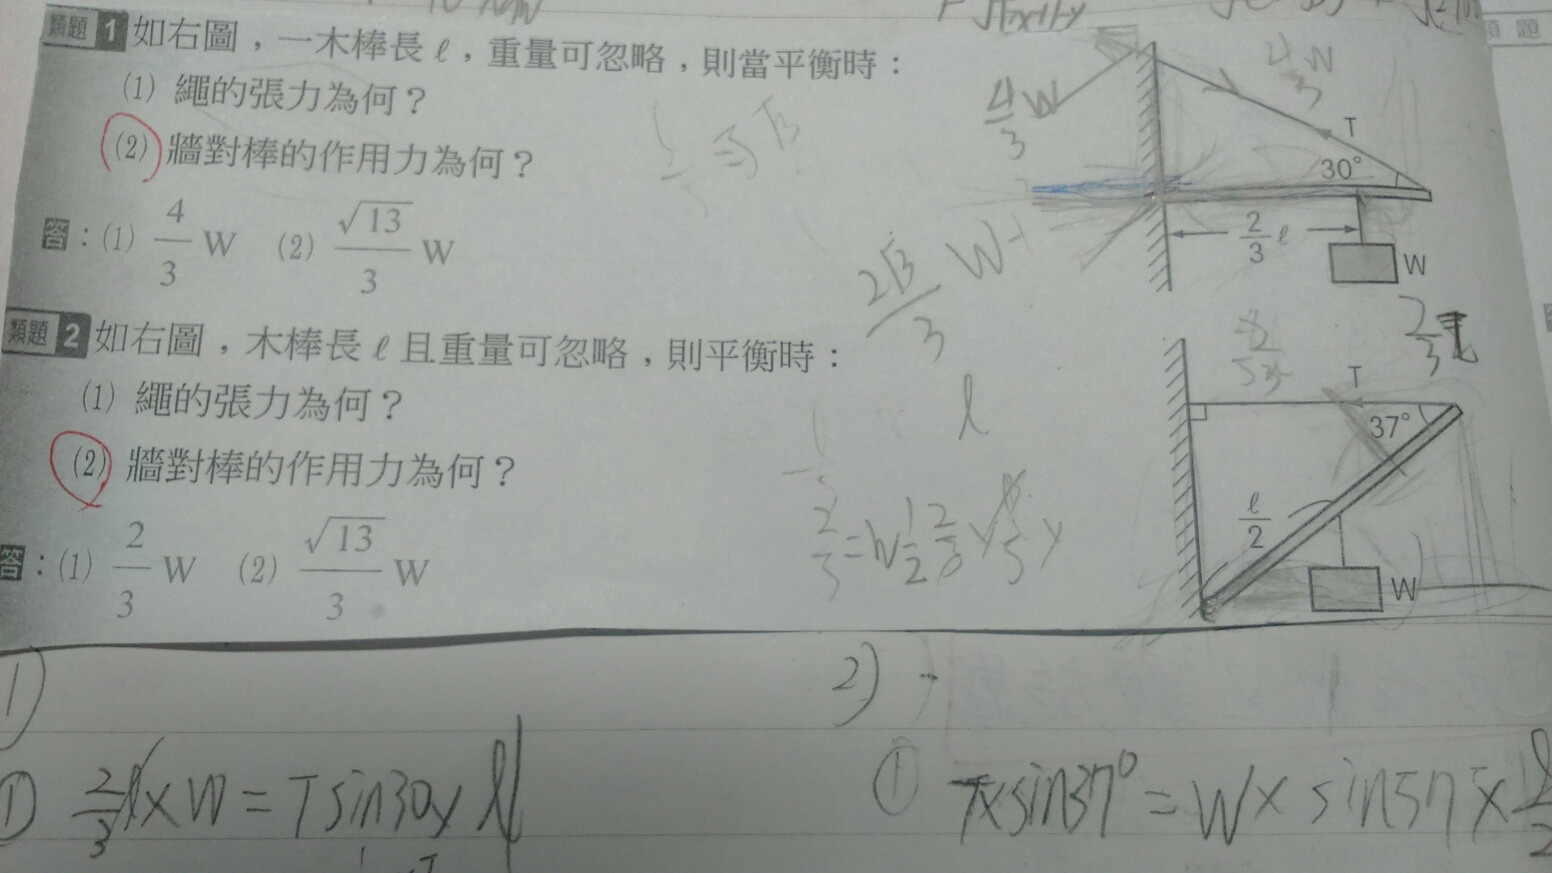 類題 1 如右圖，一木棒長ℓ，重量可忽略，則當平衡時：
(1) 繩的張力為何？
(2) 牆對棒的作用力為何？
答：(1) 4/3 W (2) √13/3 W
4/3 W
4/3 W
T
30°
2/3 ℓ
W
2√3/3 W
類題 2 如右圖，木棒長ℓ且重量可忽略，則平衡時：
(1) 繩的張力為何？
(2) 牆對棒的作用力為何？
答：(1) 2/3 W (2) √13/3 W
T
37°
ℓ/2
W
ℓ
1)
① 2/3 ℓ × W = T sin30 × ℓ
2)
① T × sin37° = W × sin57 × ℓ/2